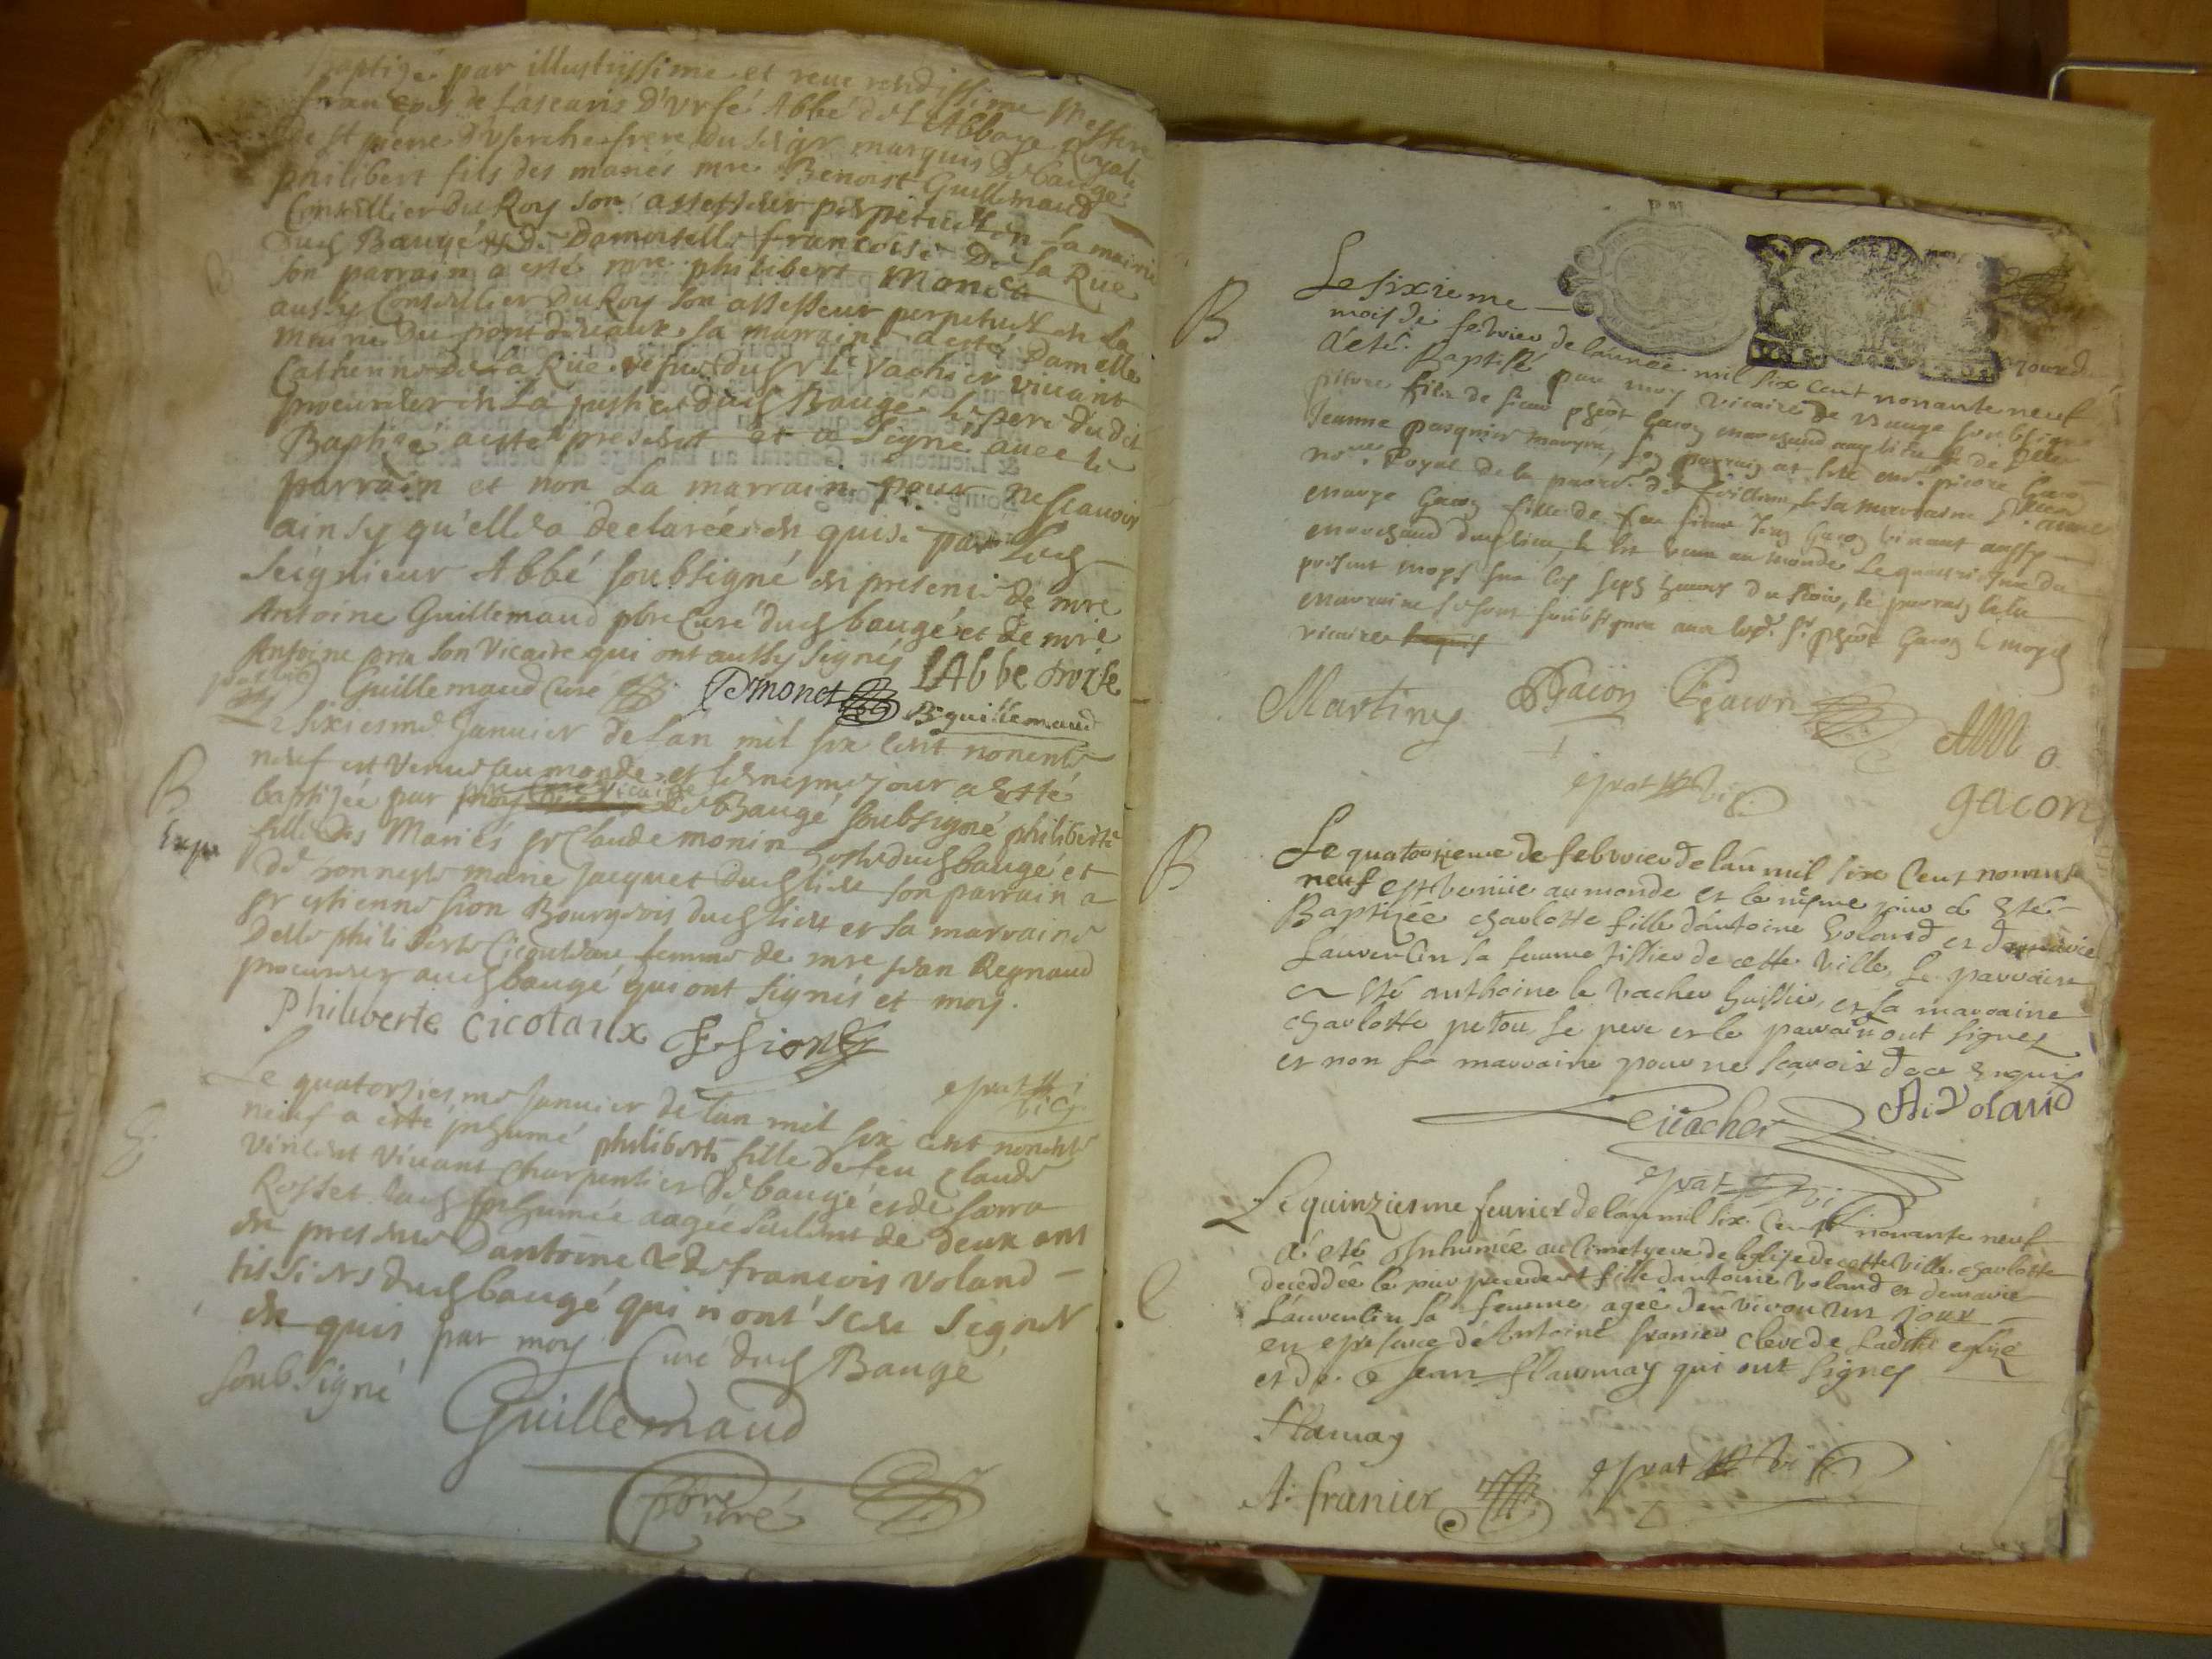 Baptizé par illustrissime et reverendissime Messire
francois de Lascaris D'Urfé Abbé de L'Abbaye Royale
de st pierre d'Userche frere du seigr marquis de baugé
philibert fils des mariés mre Benoist Guillemaud
Conseillier du Roy son assesseur perpetuel en la mairie
dud Baugé et de Damoiselle francoise De La Rue
son parrain a esté mre philibert Monet
aussy Conseillier du Roy son assesseur perpetuel en la
mairie du pont de vaux sa marraine a esté Damelle
Catherine de La Rue du sr le Vachier vivant
procureur en La justice dud Baugé le pere du dit
Baptizé a esté present et a signé avec le
parrain et non La marraine pour ne scavoir
ainsy qu'elle a declarée en quise par Led
Seignieur Abbé soubsigné en presence de mre
Antoine Guillemaud pbre Curé dud baugé et de mre
Antoine prat son Vicaire qui ont aussy signés
LAbbe durfé
Guillemaud Curé PMonet B guillemaud
Le sixiesme Janvier de Lan mil six cent nonente
neuf est venue au monde et le mesme jour a esté
baptizée par moy vicaire de Baugé soubsigné philiberte
fille des Mariés sr Claude monin dud baugé et
de honneste marie Jacquet dud lieu son parrain a
sr estienne sion Bourgeois dud lieu et sa marraine
Delle philiberte Cicoteaux femme de mre jean Regnaud
procureur aud baugé qui ont signés et moy.
Philiberte Cicotaux E Sion
prat vic
Le quatorziesme Janvier de lan mil six cent nonente
neuf a esté inhumé philiberte fille de feu Claude
Vincent vivant charpentier de baugé et de
Rosset lad inhumée aagée seulement de deux ans
en presence d'antoine & de francois Voland
tissiers dud baugé qui n'ont sceu signer
en quis par moy Curé dud Baugé
soubsigné
Guillemaud
pbre
curé
B
B
Le sixieme jour du
mois de febvrier de lannée mil six cent nonante neuf
a été Baptisé par moy vicaire de Baugé soubsigné
pierre fils de sieur phibt Gacon marchand audit lieu et de
Jeanne pasquier mariés, son parrain at été mre pierre Gacon
nore Royal de la paroisse de et sa marraine
Gacon fille de feu sieur Jean Gacon vivant aussy
marchand dud lieu, et est venu au monde Le quatriesme du
present moys sur les sept heures du soir, le parrain et la
marraine se sont soubsignés avec led sr phibt Gacon et moyd
vicaire
Martin Gacon P Gacon
prat vic
gacon
B
Le quatorzieme de febvrier de lan mil six Cent nonante
neuf est venüe au monde et le même jour a été
Baptizée charlotte fille dantoine Voland et de marie
Lauvenlin sa femme tissier de cette ville, Le parrain
a été anthoine le vacher huissier, et sa marraine
charlotte petou le pere et le parrain ont signez
et non la marraine pour ne scavoir de ce enquis
Levacher A Voland
prat vi
Le quinziesme fevrier de lan mil six Cent nonante neuf
a été Inhumée au Cimetyere de leglise de cette ville charlotte
deceddée le jour precedent fille dantoine Voland et de marie
Lauvenlin sa femme, agée denviron un jour
en presence de Antoine franier clerc de Ladite eglise
et de Jean flamay qui ont signes
flamay
A. franier prat vic